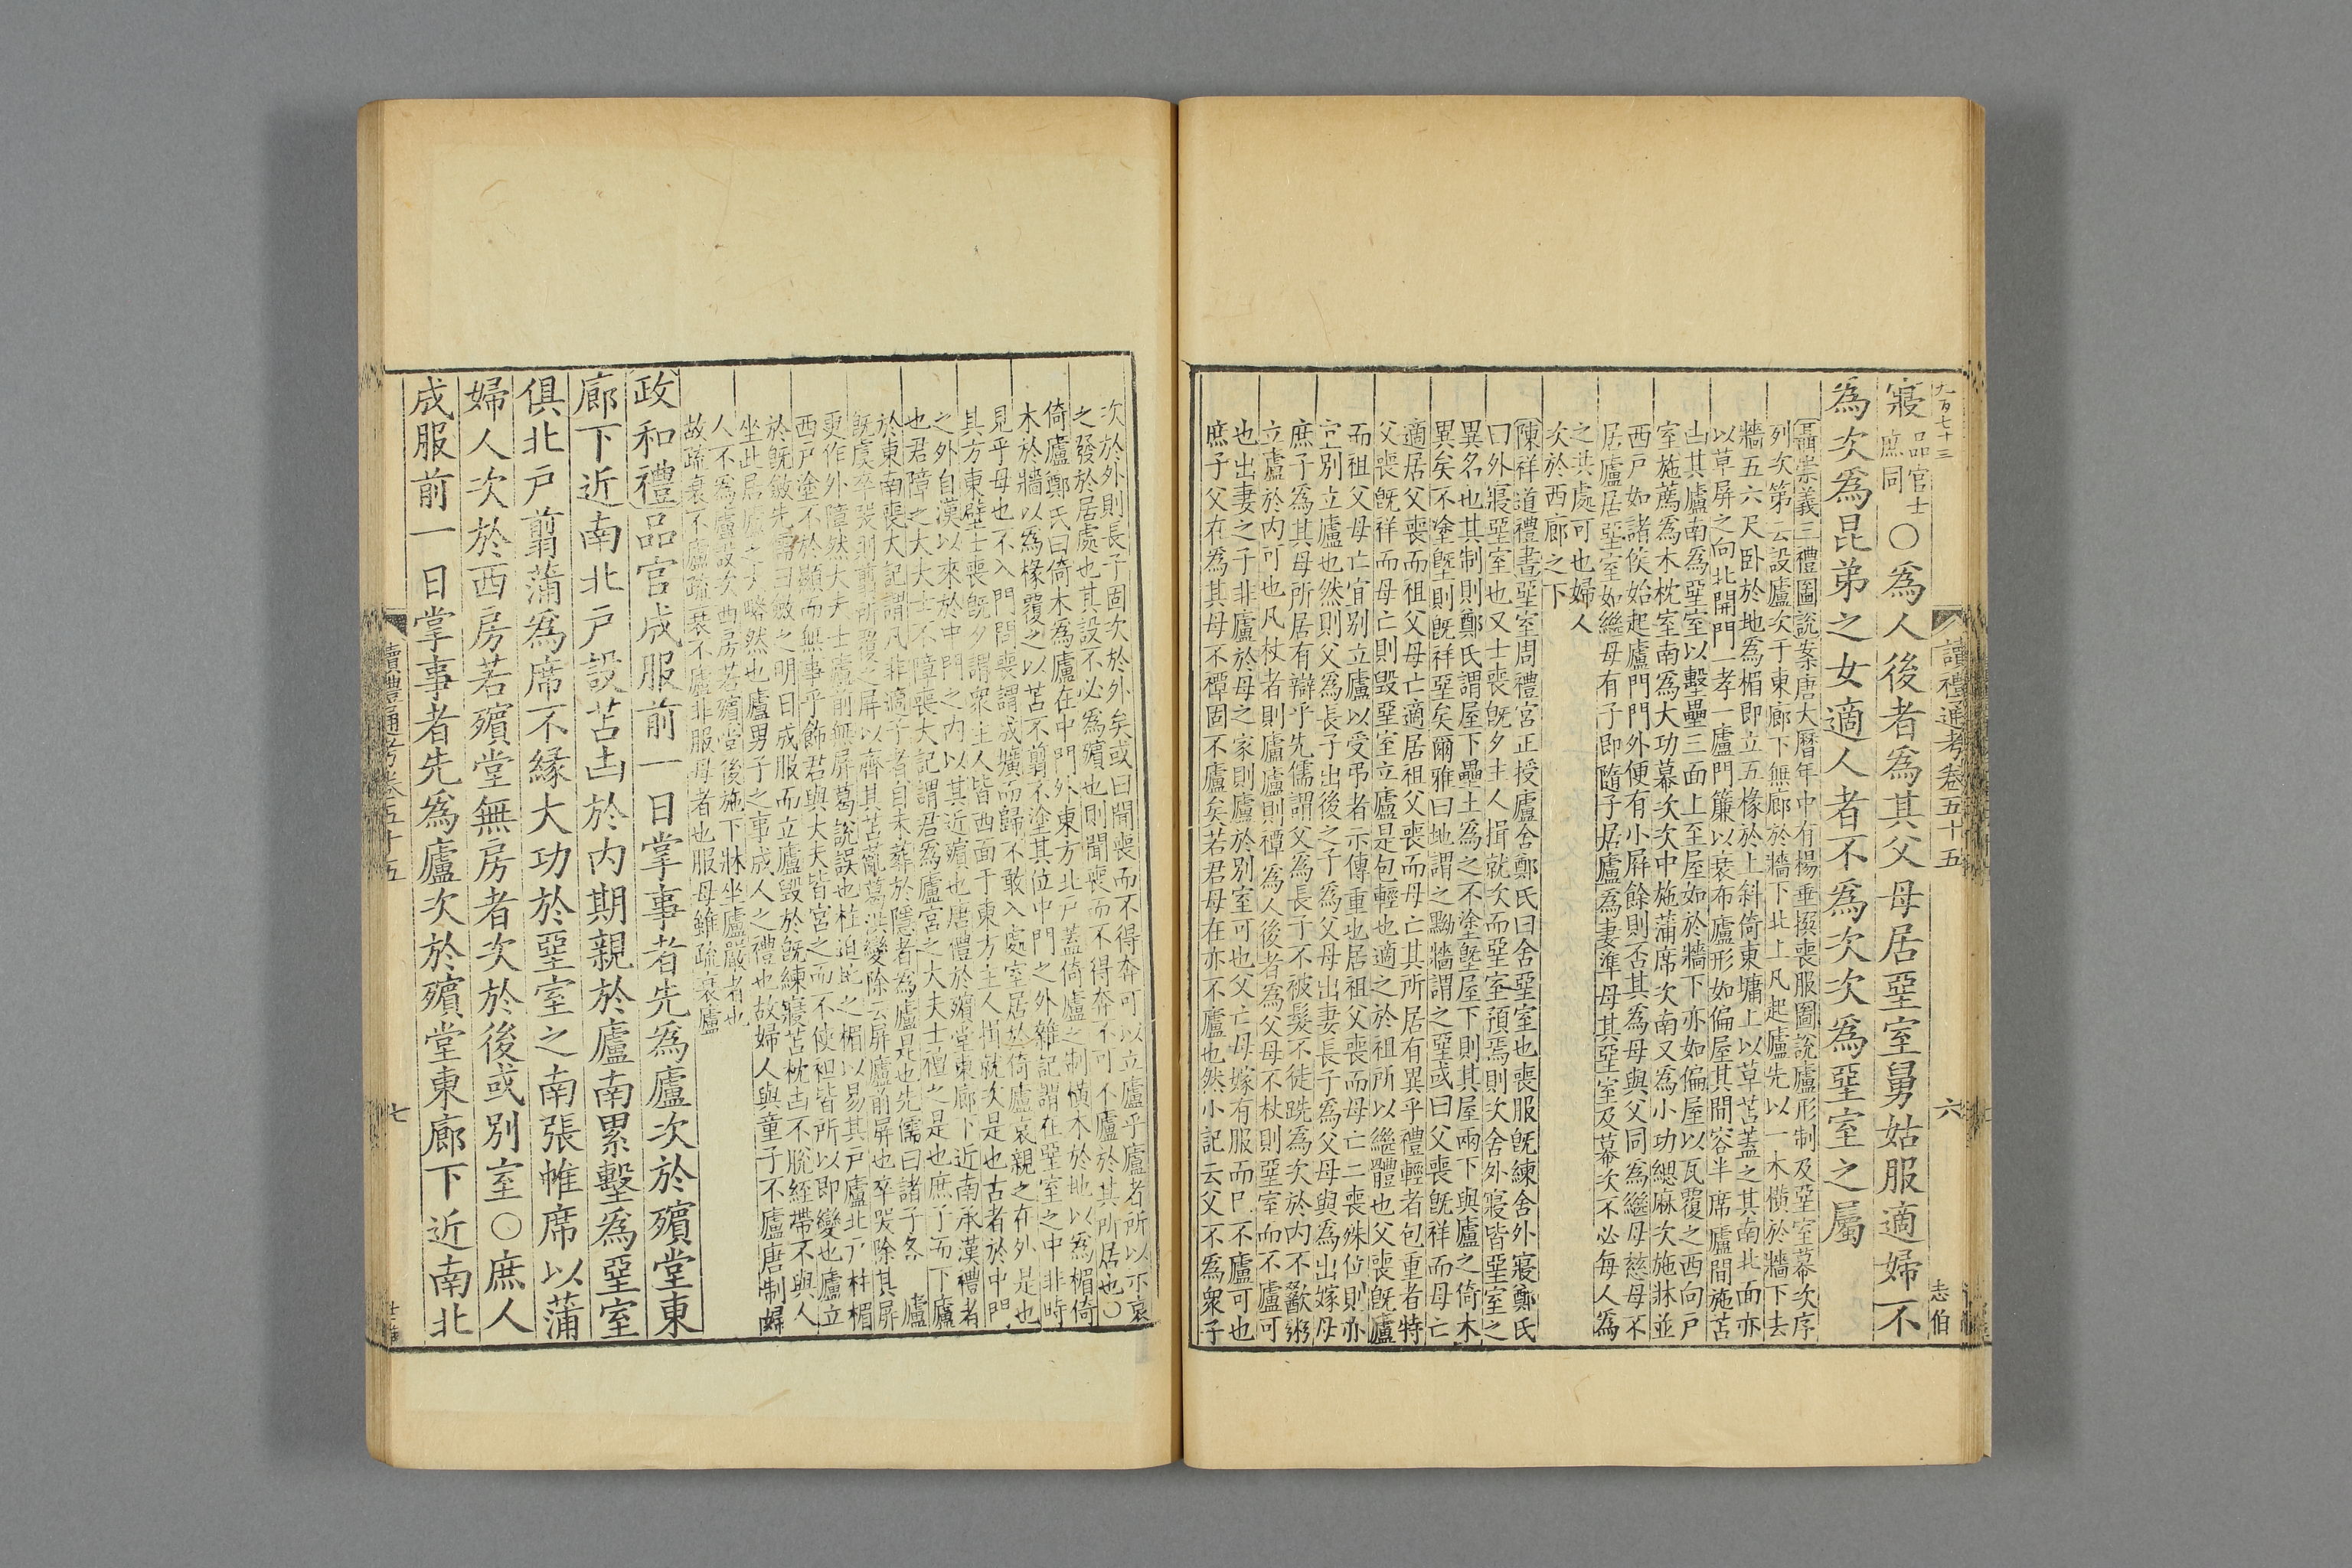 九百七十三
讀禮通考卷五十五
六
志伯
寢品官士庶同○為人後者為其父母居堊室舅姑服適婦不
為次為昆弟之女適人者不為次次為堊室之屬
聶崇義三禮圖說案唐大曆年中有楊垂撰喪服圖說廬形制及堊室幕次序
列次第云設廬次于東廊下無廊於牆下北上凡起廬先以一木橫於牆下去
牆五六尺臥於地為楣即立五椽於上斜倚東墉上以草苫蓋之其南北面亦
以草屏之向北開門一孝一廬門簾以衰布廬形如偏屋其間容半席廬間施苫
凷其廬南為堊室以墼壘三面上至屋如於牆下亦如偏屋以瓦覆之西向戶
室施薦為木枕室南為大功幕次次中施蒲席次南又為小功緦麻次施牀並
西戶如諸侯始起廬門門外便有小屏餘則否其為母與父同為繼母慈母不
居廬居堊室如繼母有子即隨子居廬為妻準母其堊室及幕次不必每人為
之共處可也婦人
次於西廊之下
陳祥道禮書堊室周禮宮正授廬舍鄭氏曰舍堊室也喪服既練舍外寢鄭氏
曰外寢堊室也又士喪既夕主人揖就次而堊室預焉則次舍外寢皆堊室之
異名也其制則鄭氏謂屋下壘土為之不塗墍屋下則其屋兩下與廬之倚木
異矣不塗墍則既祥堊矣爾雅曰地謂之黝牆謂之堊或曰父喪既祥而母亡
適居父喪而祖父母亡適居祖父喪而母亡其所居有異乎禮輕者包重者特
父喪既祥而母亡則毀堊室立廬是包輕也適之於祖所以繼體也父喪既廬
而祖父母亡宜別立廬以受弔者示傳重也居祖父喪而母亡二喪殊位則亦
宜別立廬也然則父為長子出後之子為父母出妻長子為父母與為出嫁母
庶子為其母所居有辯乎先儒謂父為長子不被髮不徒跣為次於內不歠粥
立廬於內可也凡杖者則廬廬則禫為人後者為父母不杖則堊室而不廬可
也出妻之子非廬於母之家則廬於別室可也父亡母嫁有服而已不廬可也
庶子父在為其母不禫固不廬矣若君母在亦不廬也然小記云父不為眾子
次於外則長子固次於外矣或曰聞喪而不得奔可以立廬乎廬者所以示哀
之發於居處也其設不必為殯也則聞喪而不得奔不可不廬於其所居也○
倚廬鄭氏曰倚木為廬在中門外東方北戶蓋倚廬之制橫木於地以為楣倚
木於牆以為椽覆之以苫不翦不塗其位中門之外雜記謂在堊室之中非時
見乎母也不入門間喪謂成壙而歸不敢入處室居於倚廬哀親之在外是也
其方東壁士喪既夕謂眾主人皆西面于東方主人揖就次是也古者於中門
之外自漢以來於中門之內以其近殯也唐禮於殯堂東廊下近南承漢禮者
也君障之大夫士不障喪大記謂君為廬宮之大夫士襢之是也庶子而下廬
於東南喪大記謂凡非適子者自未葬於隱者為廬是也先儒曰諸子各一廬
既虞卒哭則翦所覆之屏以齊其苫亂葛洪變除云屏廬前屏也卒哭除其屏
更作外障然大夫士廬前無屏葛說誤也柱迫地之楣以易其戶廬北戶柱楣
西戶塗不於顯而無事乎飾君與大夫皆宮之而不使袒皆所以即變也廬立
於既斂先儒曰斂之明日成服而立廬毀於既練寢苫枕凷不脫絰帶不與人
坐此居廬之大略然也廬男子之事成人之禮也故婦人與童子不廬唐制婦
人不為廬設次西房若殯堂後施下牀坐廬嚴者也
故疏衰不廬疏衰不廬非服母者也服母雖疏衰廬
政和禮品官成服前一日掌事者先為廬次於殯堂東
廊下近南北戶設苫凷於內期親於廬南累墼為堊室
俱北戶翦蒲為席不緣大功於堊室之南張帷席以蒲
婦人次於西房若殯堂無房者次於後或別室○庶人
成服前一日掌事者先為廬次於殯堂東廊下近南北
讀禮通考卷五十五
七